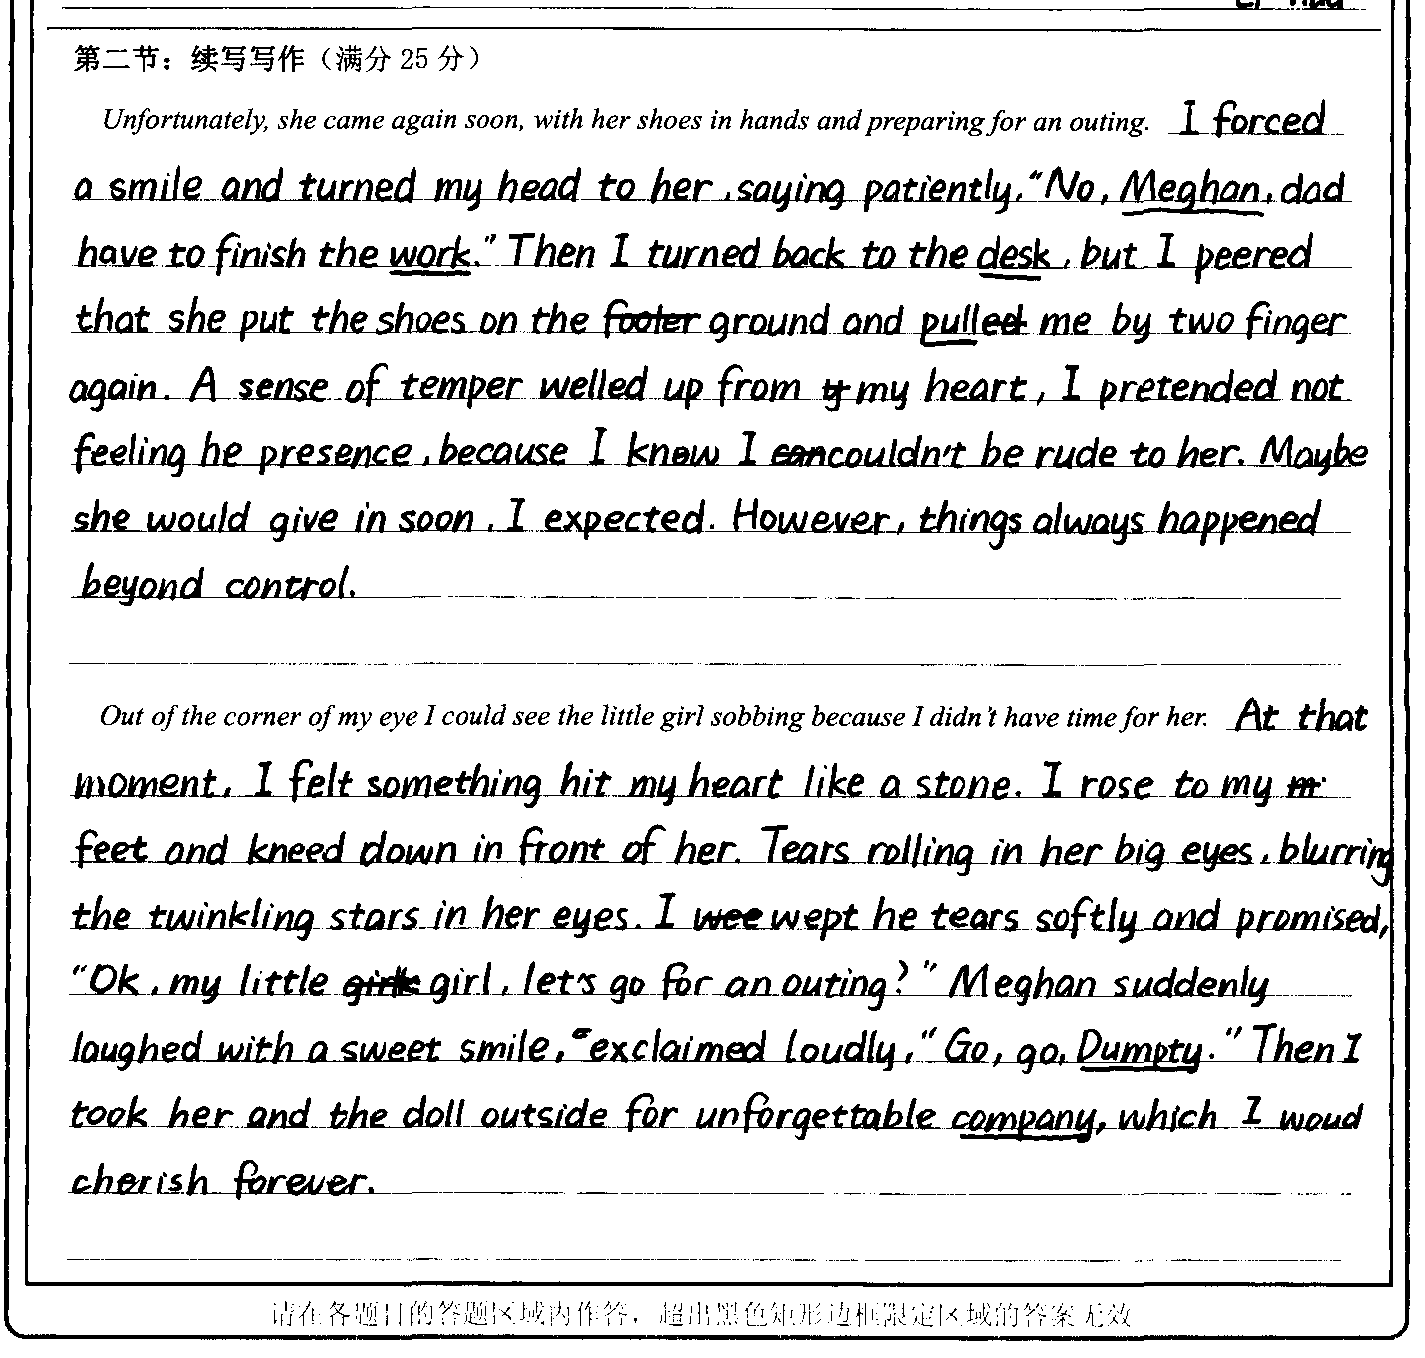 第二节：续写写作（满分 25 分）
Unfortunately, she came again soon, with her shoes in hands and preparing for an outing. I forced
a smile and turned my head to her, saying patiently, "No, Meghan, dad
have to finish the work." Then I turned back to the desk, but I peered
that she put the shoes on the footer ground and pulled me by two finger
again. A sense of temper welled up from my heart, I pretended not
feeling he presence, because I know I can couldn't be rude to her. Maybe
she would give in soon, I expected. However, things always happened
beyond control.
Out of the corner of my eye I could see the little girl sobbing because I didn't have time for her. At that
moment, I felt something hit my heart like a stone. I rose to my
feet and kneed down in front of her. Tears rolling in her big eyes, blurring
the twinkling stars in her eyes. I wee wept he tears softly and promised,
"Ok, my little girl, let's go for an outing?" Meghan suddenly
laughed with a sweet smile, exclaimed loudly, "Go, go, Dumpty." Then I
took her and the doll outside for unforgettable company, which I woud
cherish forever.
请在各题目的答题区域内作答，超出黑色矩形边框限定区域的答案无效